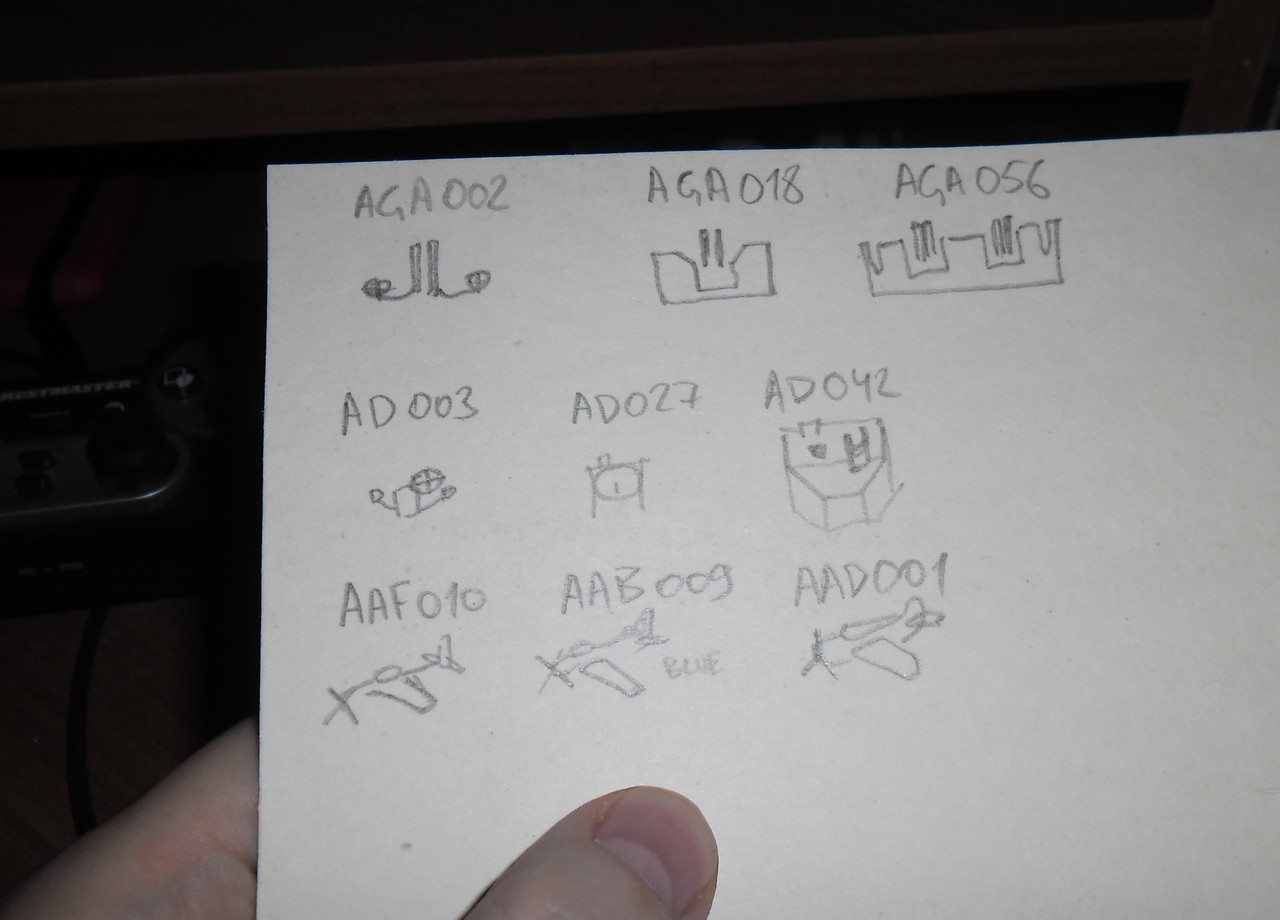 AGA002 AGA018 AGA056
AD003 AD027 AD042
AAF010 AAB009 AAD001
BLUE